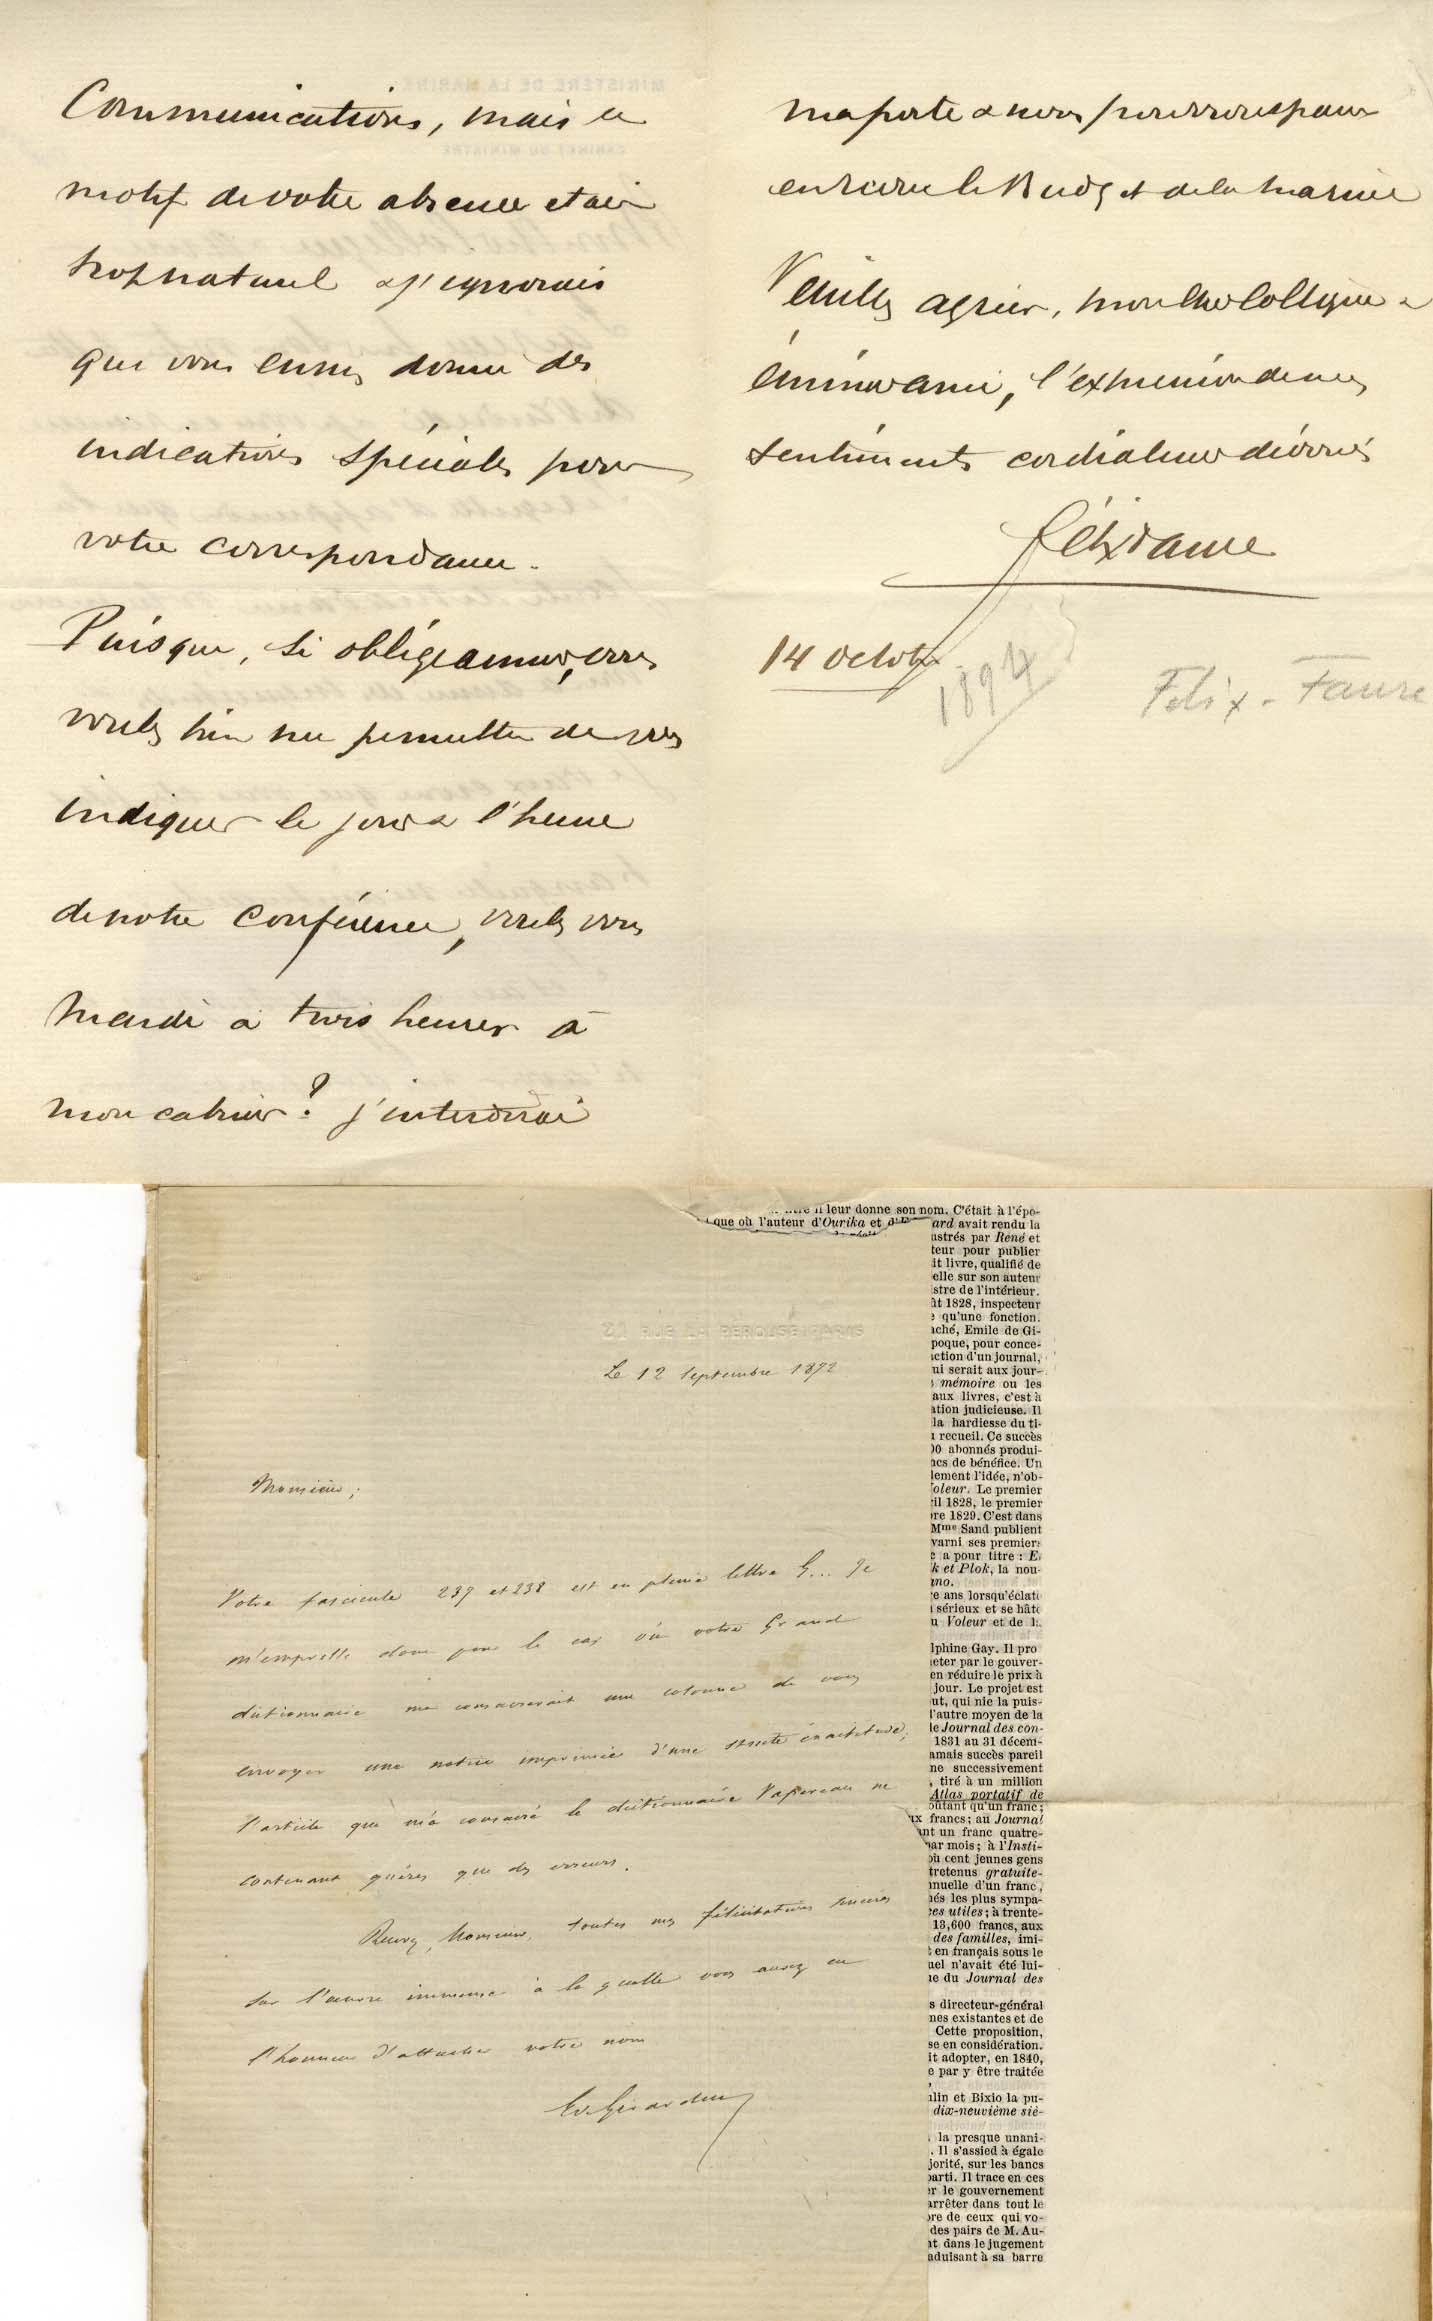 Communications, mais le
motif de votre absence était
trop naturel & j'ignorais
que vous eussiez donné des
indications spéciales pour
votre correspondance.
Puisque, si obligeamment, vous
voulez bien me permettre de vous
indiquer le jour & l'heure
de notre conférence, voulez vous
Mardi à trois heures à
mon cabinet? j'interdirai
ma porte & nous pourrons passer
en revue le Budget de la Marine
Veuillez agréer, mon cher Collègue &
éminent ami, l'expression de mes
sentiments cordialement dévoués
Félix Faure
14 Octobre
1894
Felix-Faure
MINISTÈRE DE LA MARINE
CABINET DU MINISTRE
21 RUE LA PEROUSE PARIS
Le 12 Septembre 1872
Monsieur,
Votre fascicule 237 et 238 est en pleine lettre G... Je
m'empresse donc pour le cas où votre Grand
dictionnaire me consacrerait une colonne de vous
envoyer une notice imprimée d'une stricte éxactitude,
l'article que m'a consacré le dictionnaire Vapereau ne
contenant guères que des erreurs.
Recevez, Monsieur, toutes mes félicitations sincères
sur l'œuvre immense à la quelle vous aurez eu
l'honneur d'attacher votre nom
E de Girardin
il leur donne son nom. C'était à l'épo-
que où l'auteur d'Ourika et d'E ard avait rendu la
ustrés par René et
teur pour publier
it livre, qualifié de
elle sur son auteur
stre de l'intérieur.
ût 1828, inspecteur
qu'une fonction.
ché, Emile de Gi-
poque, pour conce-
ction d'un journal,
ui serait aux jour-
mémoire ou les
aux livres, c'est à
ation judicieuse. Il
la hardiesse du ti-
recueil. Ce succès
00 abonnés produi-
ncs de bénéfice. Un
lement l'idée, n'ob-
Voleur. Le premier
il 1828, le premier
re 1829. C'est dans
Mme Sand publient
varni ses premiers
a pour titre : E
k et Plok, la nou-
no.
e ans lorsqu'éclate
sérieux et se hâte
u Voleur et de l
lphine Gay. Il pro
eter par le gouver-
en réduire le prix à
jour. Le projet est
ut, qui nie la puis-
l'autre moyen de la
le Journal des con-
1831 au 31 décem-
amais succès pareil
ne successivement
, tiré à un million
Atlas portatif de
oûtant qu'un franc ;
ux francs ; au Journal
ant un franc quatre-
par mois ; à l'Insti-
où cent jeunes gens
tretenus gratuite-
nnuelle d'un franc,
nés les plus sympa-
ces utiles ; à trente-
13,600 francs, aux
des familles, imi-
en français sous le
uel n'avait été lui-
ne du Journal des
s directeur-général
nes existantes et de
Cette proposition,
se en considération.
it adopter, en 1840,
e par y être traitée
ulin et Bixio la pu-
dix-neuvième siè-
la presque unani-
. Il s'assied à égale
jorité, sur les bancs
parti. Il trace en ces
er le gouvernement
arrêter dans tout le
bre de ceux qui vo-
des pairs de M. Au-
nt dans le jugement
aduisant à sa barre